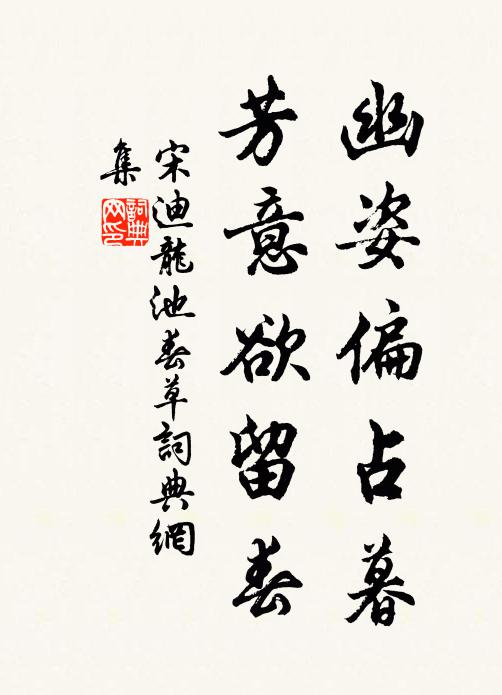 幽姿偏占暮
芳意欲留春
宋迪龍池春草詞典網
集
詞典
网印